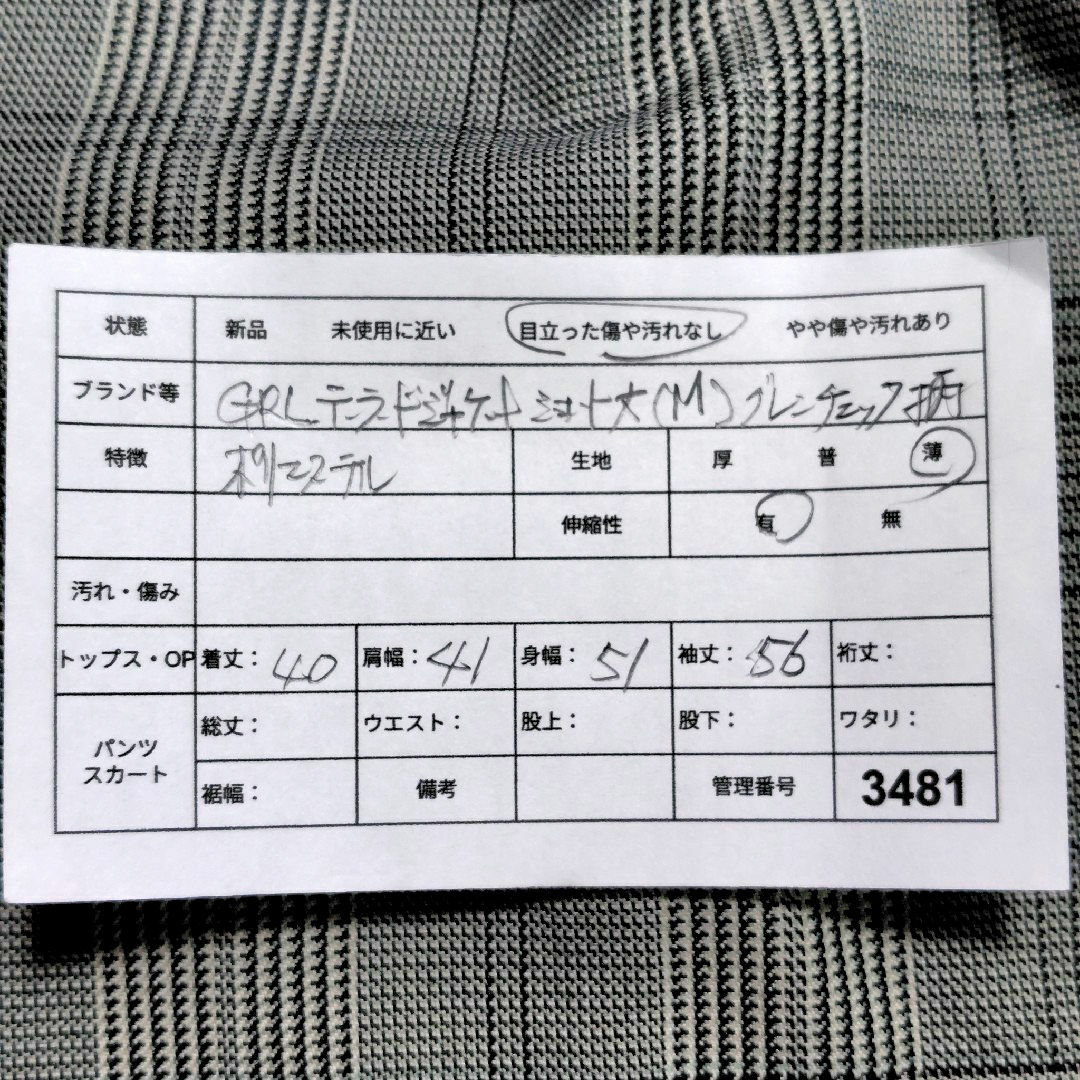 状態 新品 未使用に近い 目立った傷や汚れなし やや傷や汚れあり
ブランド等 GRL テーラードジャケット ショート丈(M) グレンチェック柄
特徴 ポリエステル 生地 厚 普 薄
伸縮性 有 無
汚れ・傷み
トップス・OP 着丈： 40 肩幅： 41 身幅： 51 袖丈： 56 裄丈：
パンツ スカート 総丈： ウエスト： 股上： 股下： ワタリ：
裾幅： 備考 管理番号 3481